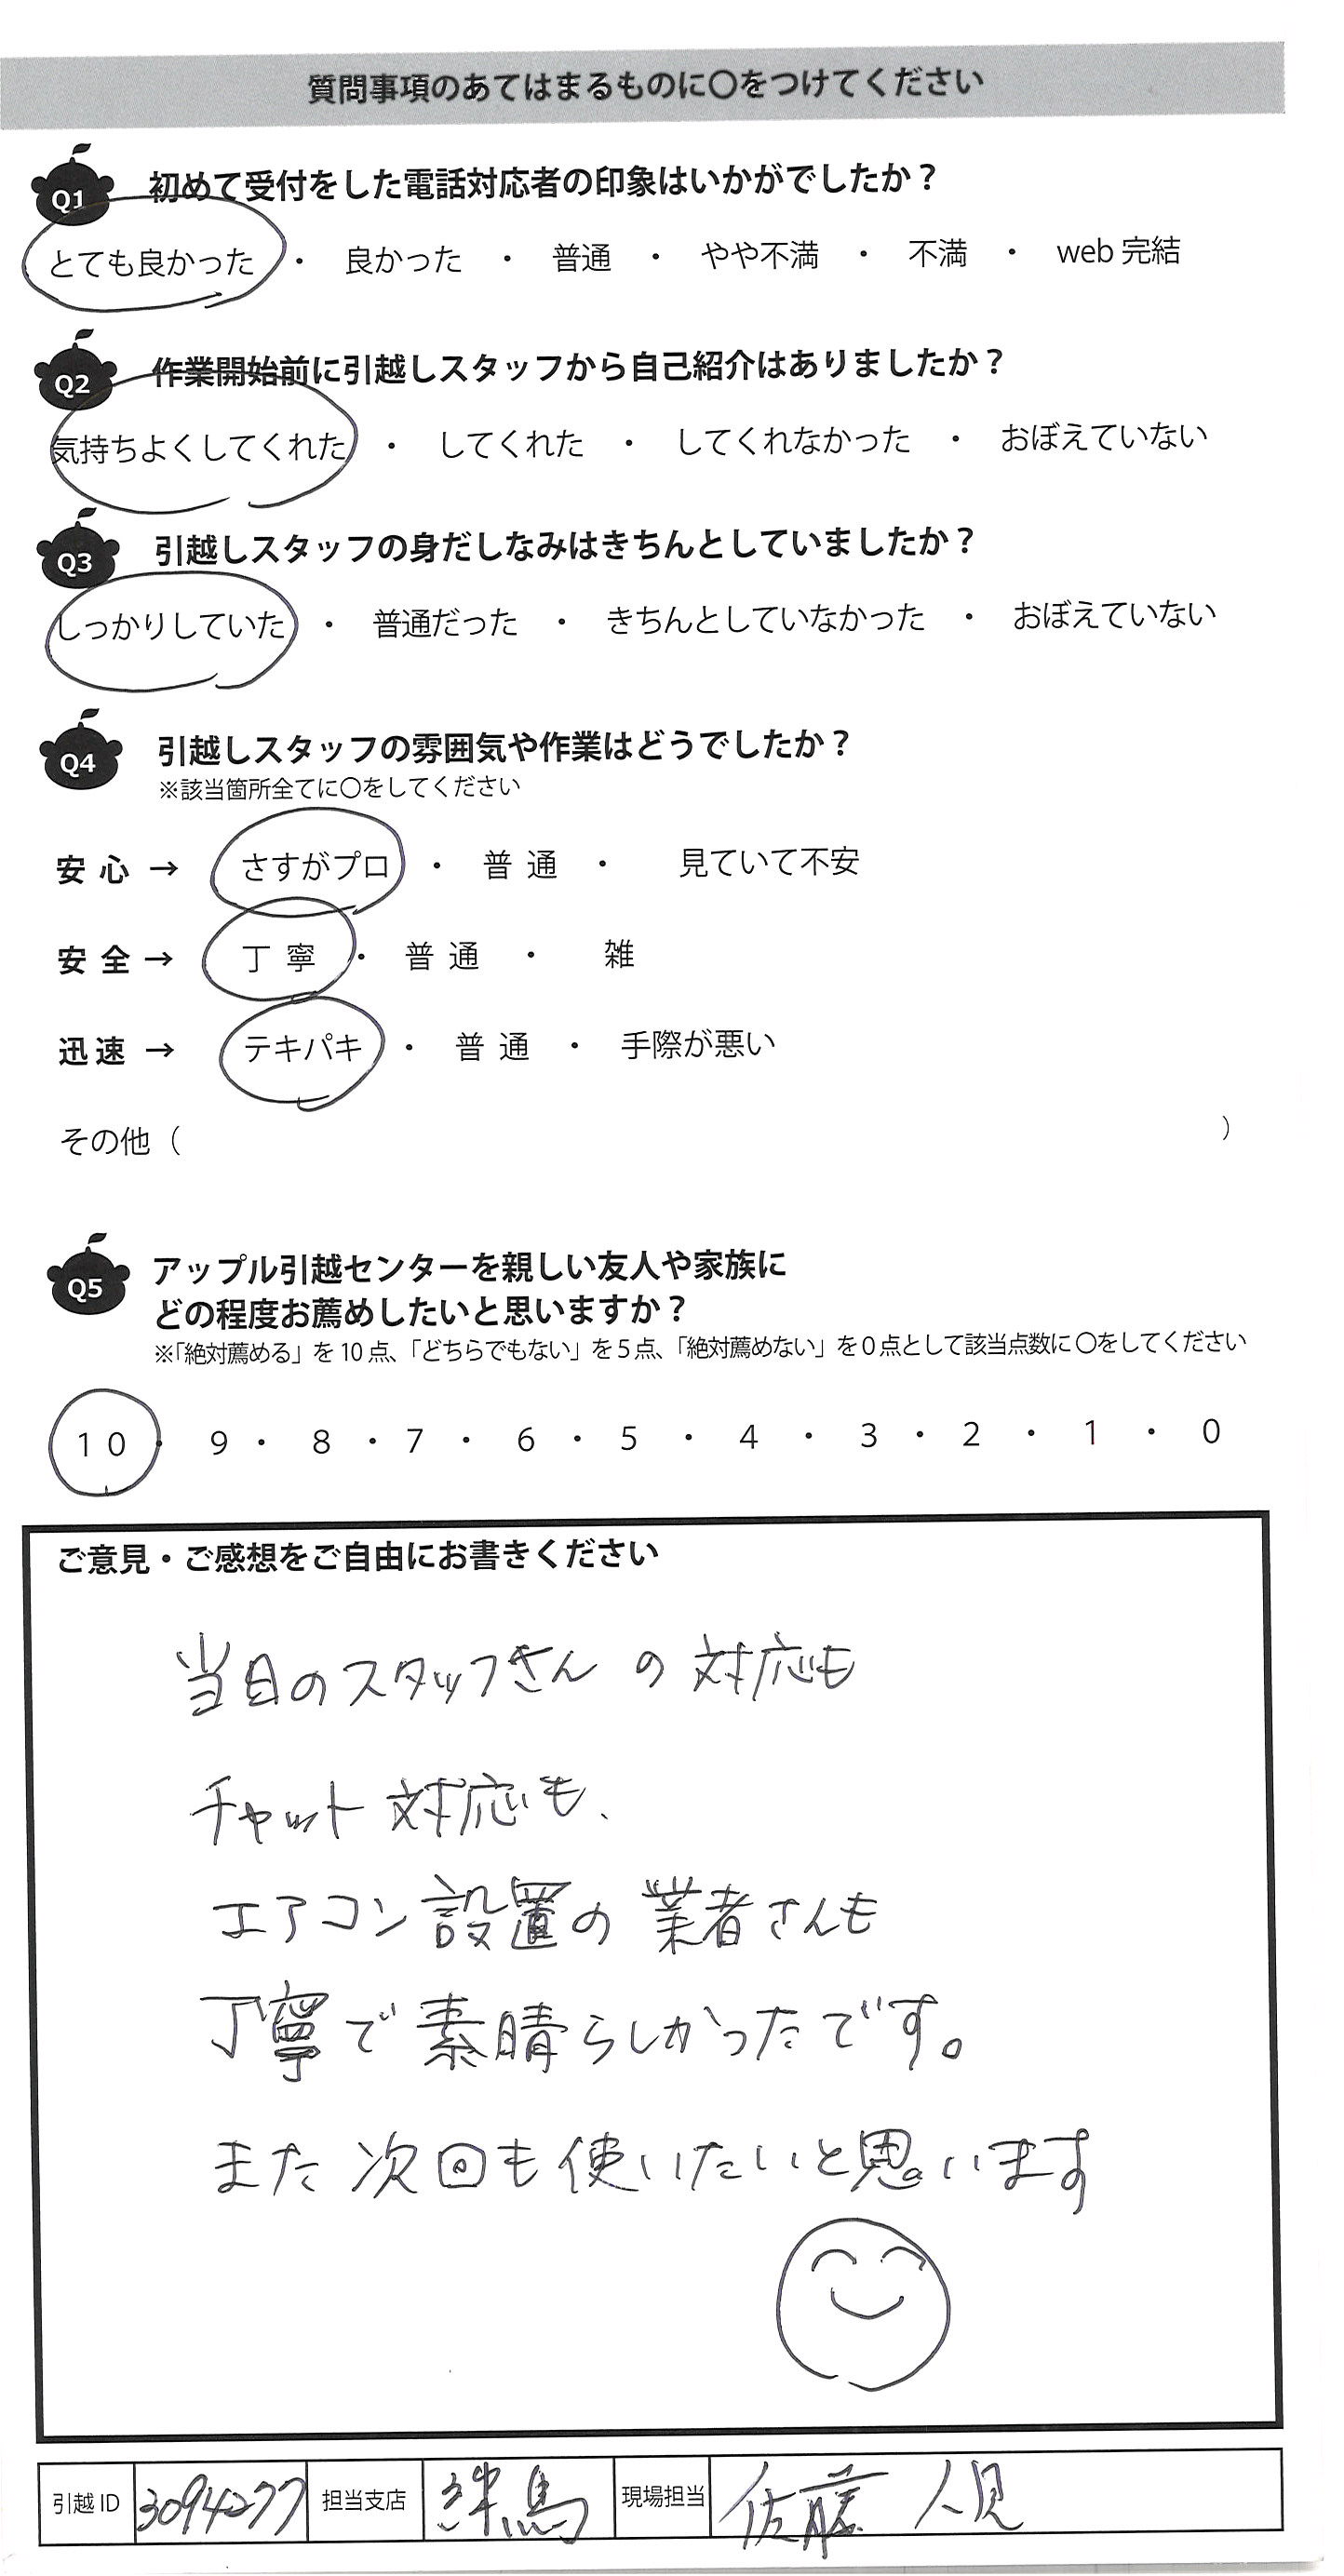 質問事項のあてはまるものに〇をつけてください
Q1 初めて受付をした電話対応者の印象はいかがでしたか？
とても良かった ・ 良かった ・ 普通 ・ やや不満 ・ 不満 ・ web 完結
Q2 作業開始前に引越しスタッフから自己紹介はありましたか？
気持ちよくしてくれた ・ してくれた ・ してくれなかった ・ おぼえていない
Q3 引越しスタッフの身だしなみはきちんとしていましたか？
しっかりしていた ・ 普通だった ・ きちんとしていなかった ・ おぼえていない
Q4 引越しスタッフの雰囲気や作業はどうでしたか？
※該当箇所全てに〇をしてください
安 心 → さすがプロ ・ 普 通 ・ 見ていて不安
安 全 → 丁 寧 ・ 普 通 ・ 雑
迅 速 → テキパキ ・ 普 通 ・ 手際が悪い
その他（ ）
Q5 アップル引越センターを親しい友人や家族に
どの程度お薦めしたいと思いますか？
※「絶対薦める」を 10 点、「どちらでもない」を 5 点、「絶対薦めない」を 0 点として該当点数に 〇をしてください
10 ・ 9 ・ 8 ・ 7 ・ 6 ・ 5 ・ 4 ・ 3 ・ 2 ・ 1 ・ 0
ご意見・ご感想をご自由にお書きください
当日のスタッフさんの対応も
チャット対応も、
エアコン設置の業者さんも
丁寧で素晴らしかったです。
また次回も使いたいと思います
引越 ID 3094277 担当支店 練馬 現場担当 佐藤